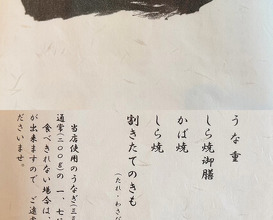 うな重
しら焼御膳
かば焼
しら焼
割きたてのきも
(たれ・わさび
当店使用のうなぎ(三
通常(二〇〇g)の一、七
食べきれない場合は、
が出来ますので、ご遠
ださいませ。